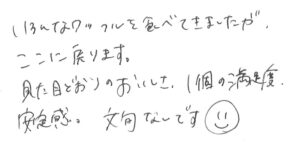 いろんなワッフルを食べてきましたが、
ここに戻ります。
見た目どおりのおいしさ、1個の満足度
安定感。文句なしです